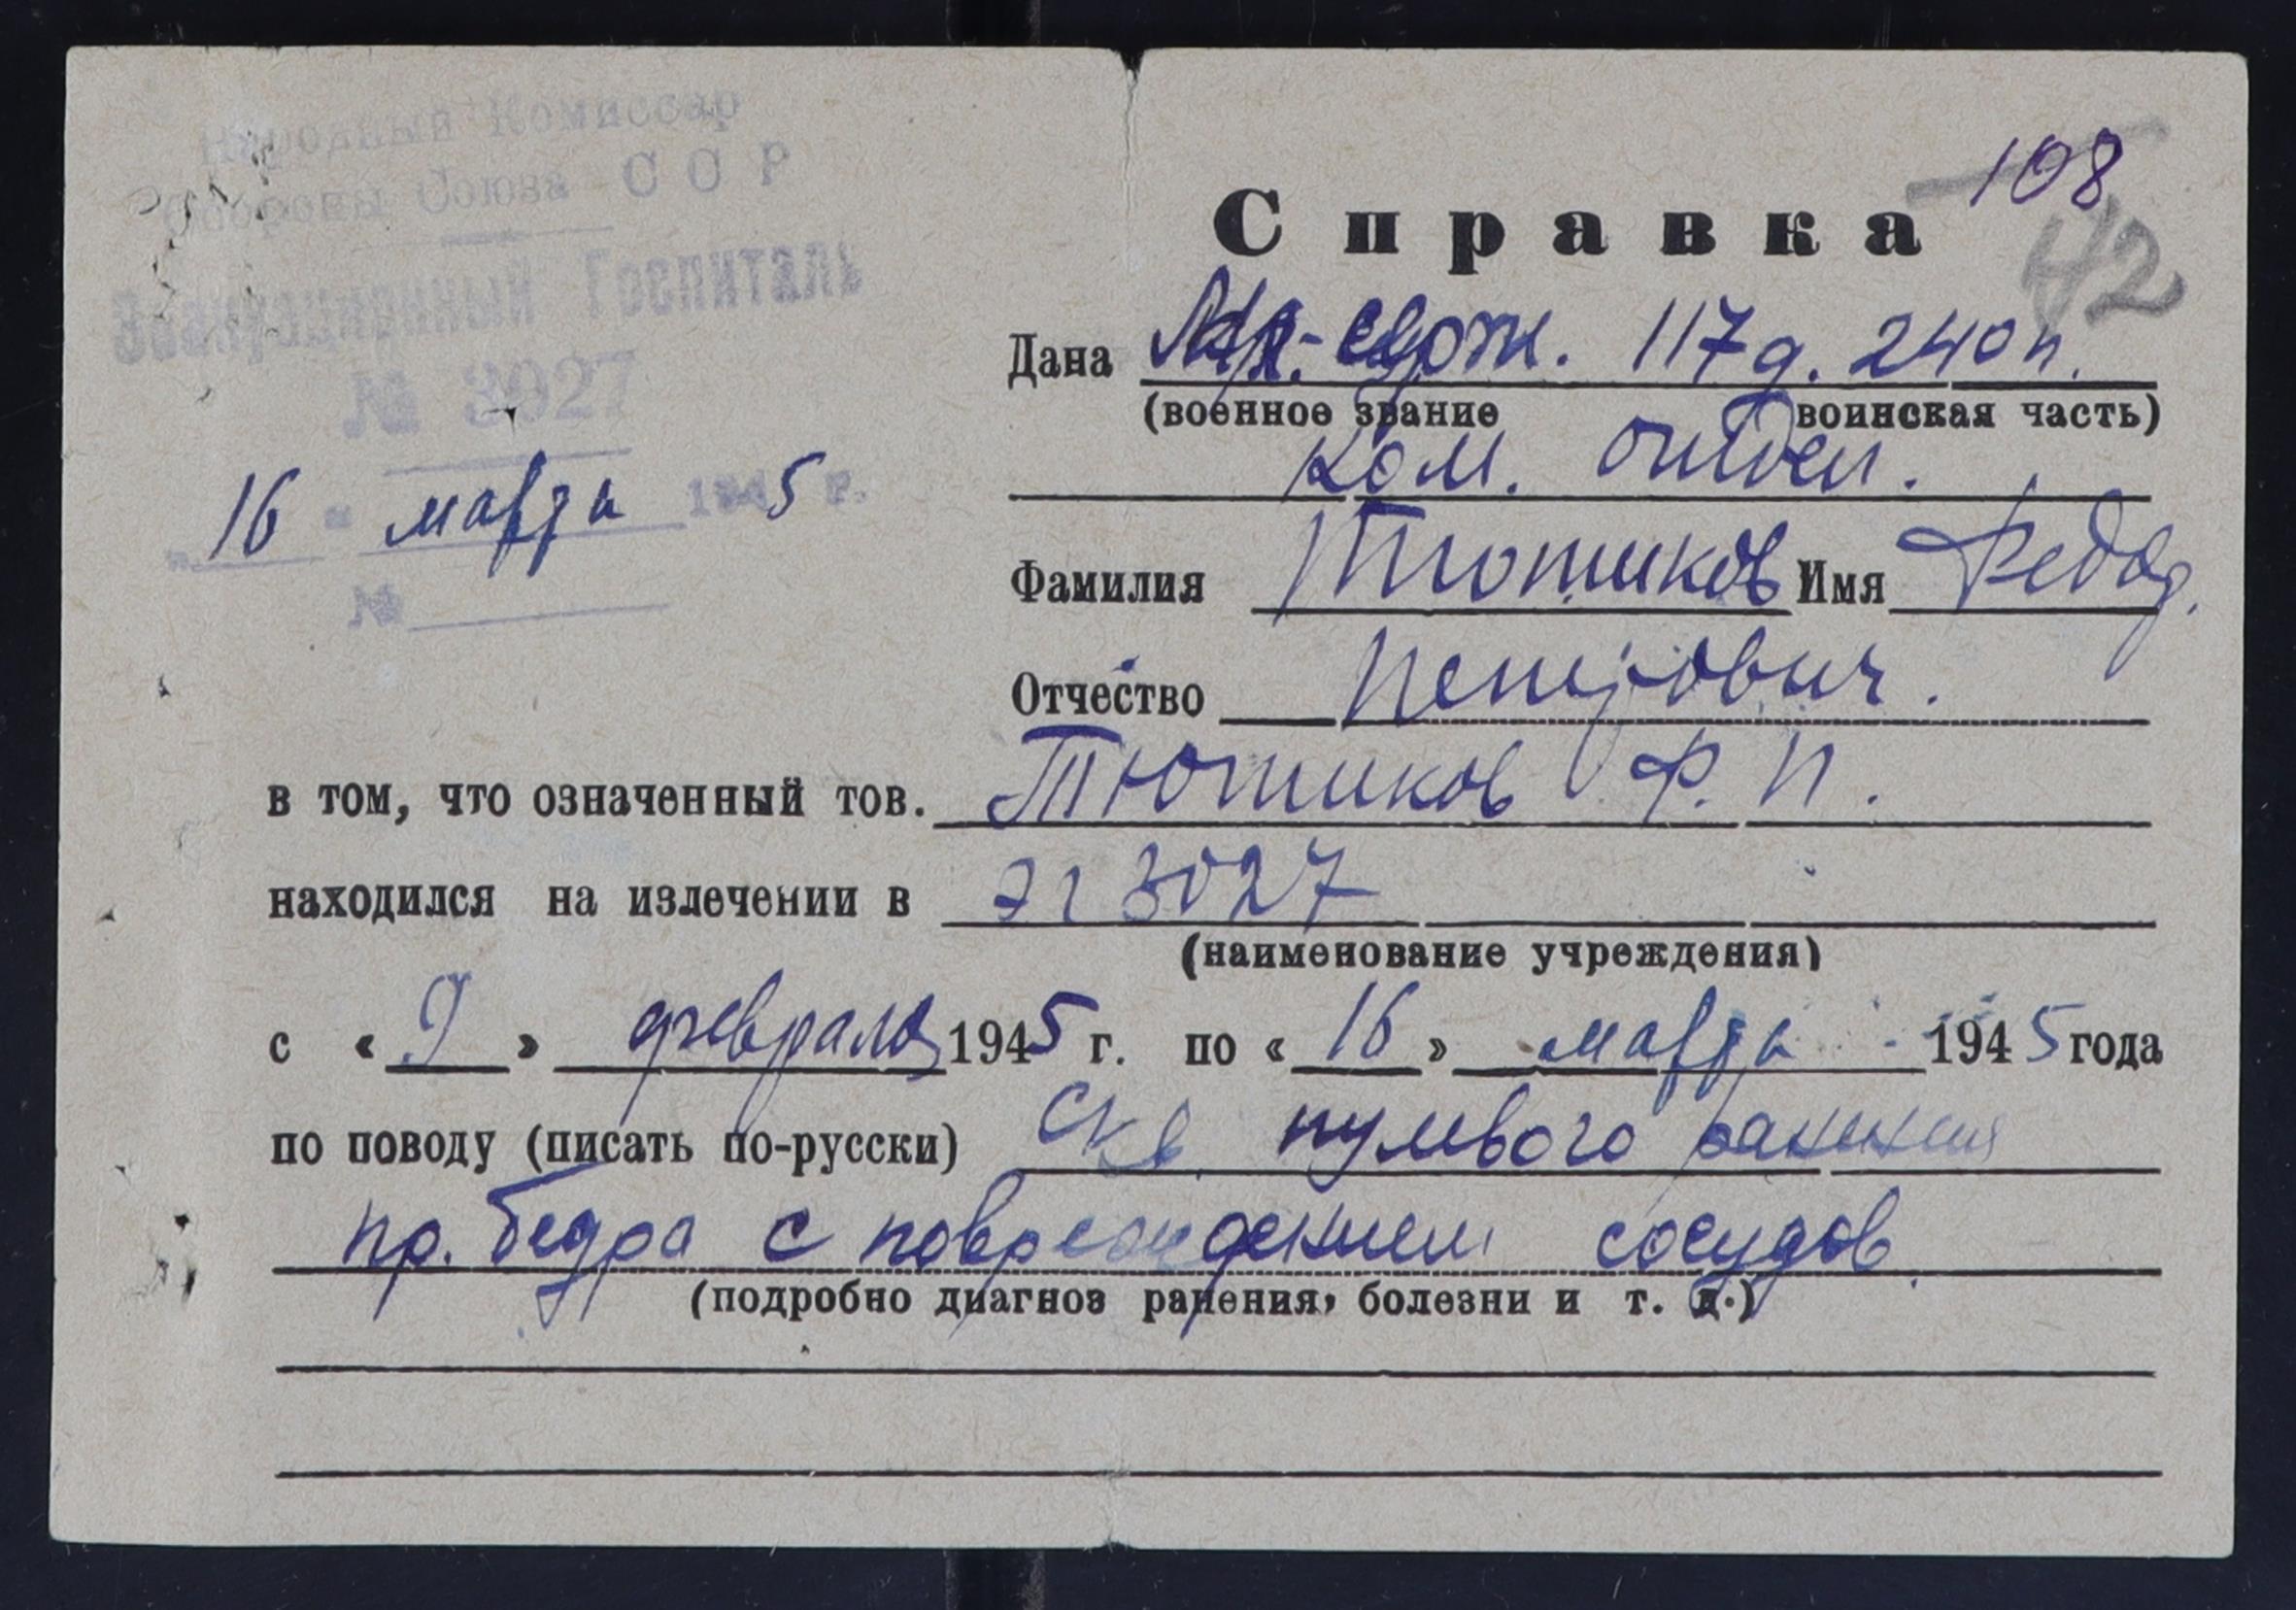 Народный Комиссар
Обороны Союза ССР
Эвакуационный Госпиталь
№ 3027
„ 16 " марта 1945 г.
№
108
42
Справка
Дана Мл.-серж. 117 д. 240 п.
(военное звание воинская часть)
Ком. отдел.
Фамилия Тютиков Имя Федор
Отчество Петрович.
в том, что означенный тов. Тютиков Ф. П.
находился на излечении в ЭГ 3027
(наименование учреждения)
с « 9 » февраля 1945 г. по « 16 » марта 1945 года
по поводу (писать по-русски) Скв. пулевого ранения
пр. бедра с повреждением сосудов
(подробно диагноз ранения, болезни и т. д.)